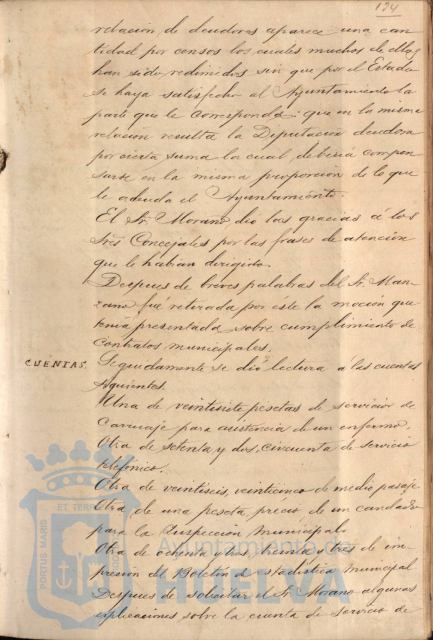 124
relacion de deudores aparece una can
tidad por censos los cuales muchos de ellos
han sido redimidos sin que por el Estado
se haya satisfecho al Ayuntamiento la
parte que le corresponda: que en la misma
relacion resulta la Diputacion deudora
por cierta suma la cual deberia compen
sarse en la misma proporcion de lo que
le adeuda el Ayuntamiento.
El Sr. Morano dió las gracias á los
Sres Concejales por las frases de atencion
que le habian dirigido.
Despues de breves palabras del Sr. Man
zano fué retirada por éste la mocion que
tenia presentada sobre cumplimiento de
contratos municipales.
CUENTAS.
Seguidamente se dió lectura a las cuentas
siguientes.
Una de veintisiete pesetas de servicios de
Carruaje para asistencia de un enfermo.
Otra de setenta y dos, cincuenta de servicio
telefonico.
Otra de veintiseis, veinticinco de medio pasaje
Otra de una peseta precio de un candado
para la Inspeccion Municipal.
Otra de ochenta y dos, treinta y tres de im
presion del Boletin de estadistica Municipal
Despues de solicitar el Sr. Morano algunas
esplicaciones sobre la cuenta de servicio de
PORTUS MARIS
ET TERRAE
Ayuntamiento de
HUELVA